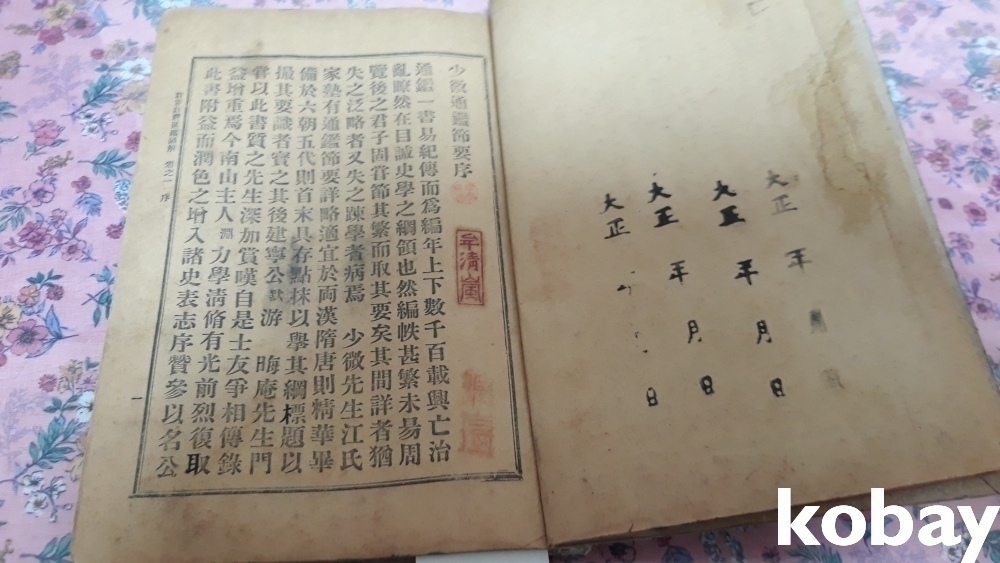 大正 年 月 日
大正 年 月 日
大正 年 月 日
大正 日
少微通鑑節要序
通鑑一書易紀傳而爲編年上下數千百載興亡治
亂瞭然在目誠史學之綱領也然編帙甚繁未易周
覽後之君子固嘗節其繁而取其要矣其間詳者猶
失之泛略者又失之踈學者病焉 少微先生江氏
家塾有通鑑節要詳略適宜於兩漢隋唐則精華畢
備於六朝五代則首末具存點抹以擧其綱標題以
撮其要識者寶之其後建寧公默游 晦庵先生門
嘗以此書質之先生深加賞嘆自是士友爭相傳錄
益增重焉今南山主人淵力學淸脩有光前烈復取
此書附益而潤色之增入諸史表志序贊參以名公
卷之一 序
一
kobay